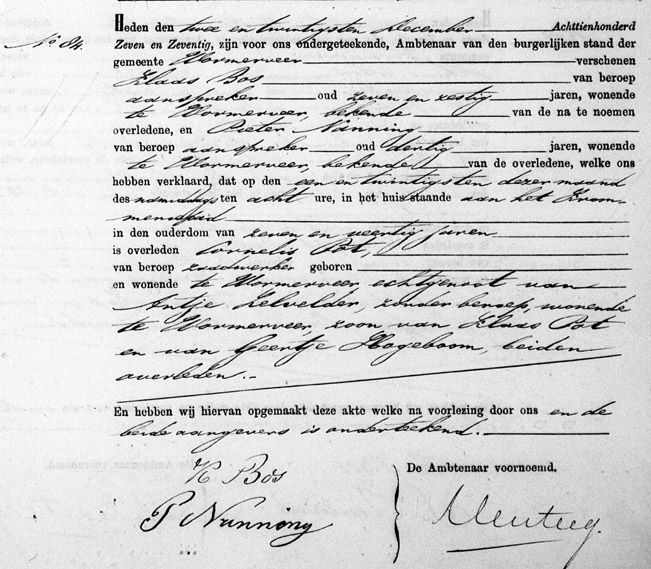 Heden den twee en twintigsten December Achttienhonderd
No 84. Zeven en Zeventig, zijn voor ons ondergeteekende, Ambtenaar van den burgerlijken stand der
gemeente Wormerveer verschenen
Klaas Bos van beroep
aanspreker oud zeven en zestig jaren, wonende
te Wormerveer, bekende van de na te noemen
overledene, en Pieter Nanning
van beroep aanspreker oud dertig jaren, wonende
te Wormerveer, bekende van de overledene, welke ons
hebben verklaard, dat op den een en twintigsten dezer maand
des namiddags ten acht ure, in het huis staande aan het Krom-
menspad
in den ouderdom van zeven en veertig jaren
is overleden Cornelis Pot,
van beroep zaadwerker geboren
en wonende te Wormerveer, echtgenoot van
Antje Zelvelder, zonder beroep, wonende
te Wormerveer, zoon van Klaas Pot
en van Geertje Hogeboom, beiden
overleden.-
En hebben wij hiervan opgemaakt deze akte welke na voorlezing door ons en de
beide aangevers is onderteekend.
K Bos
De Ambtenaar voornoemd.
P Nanning